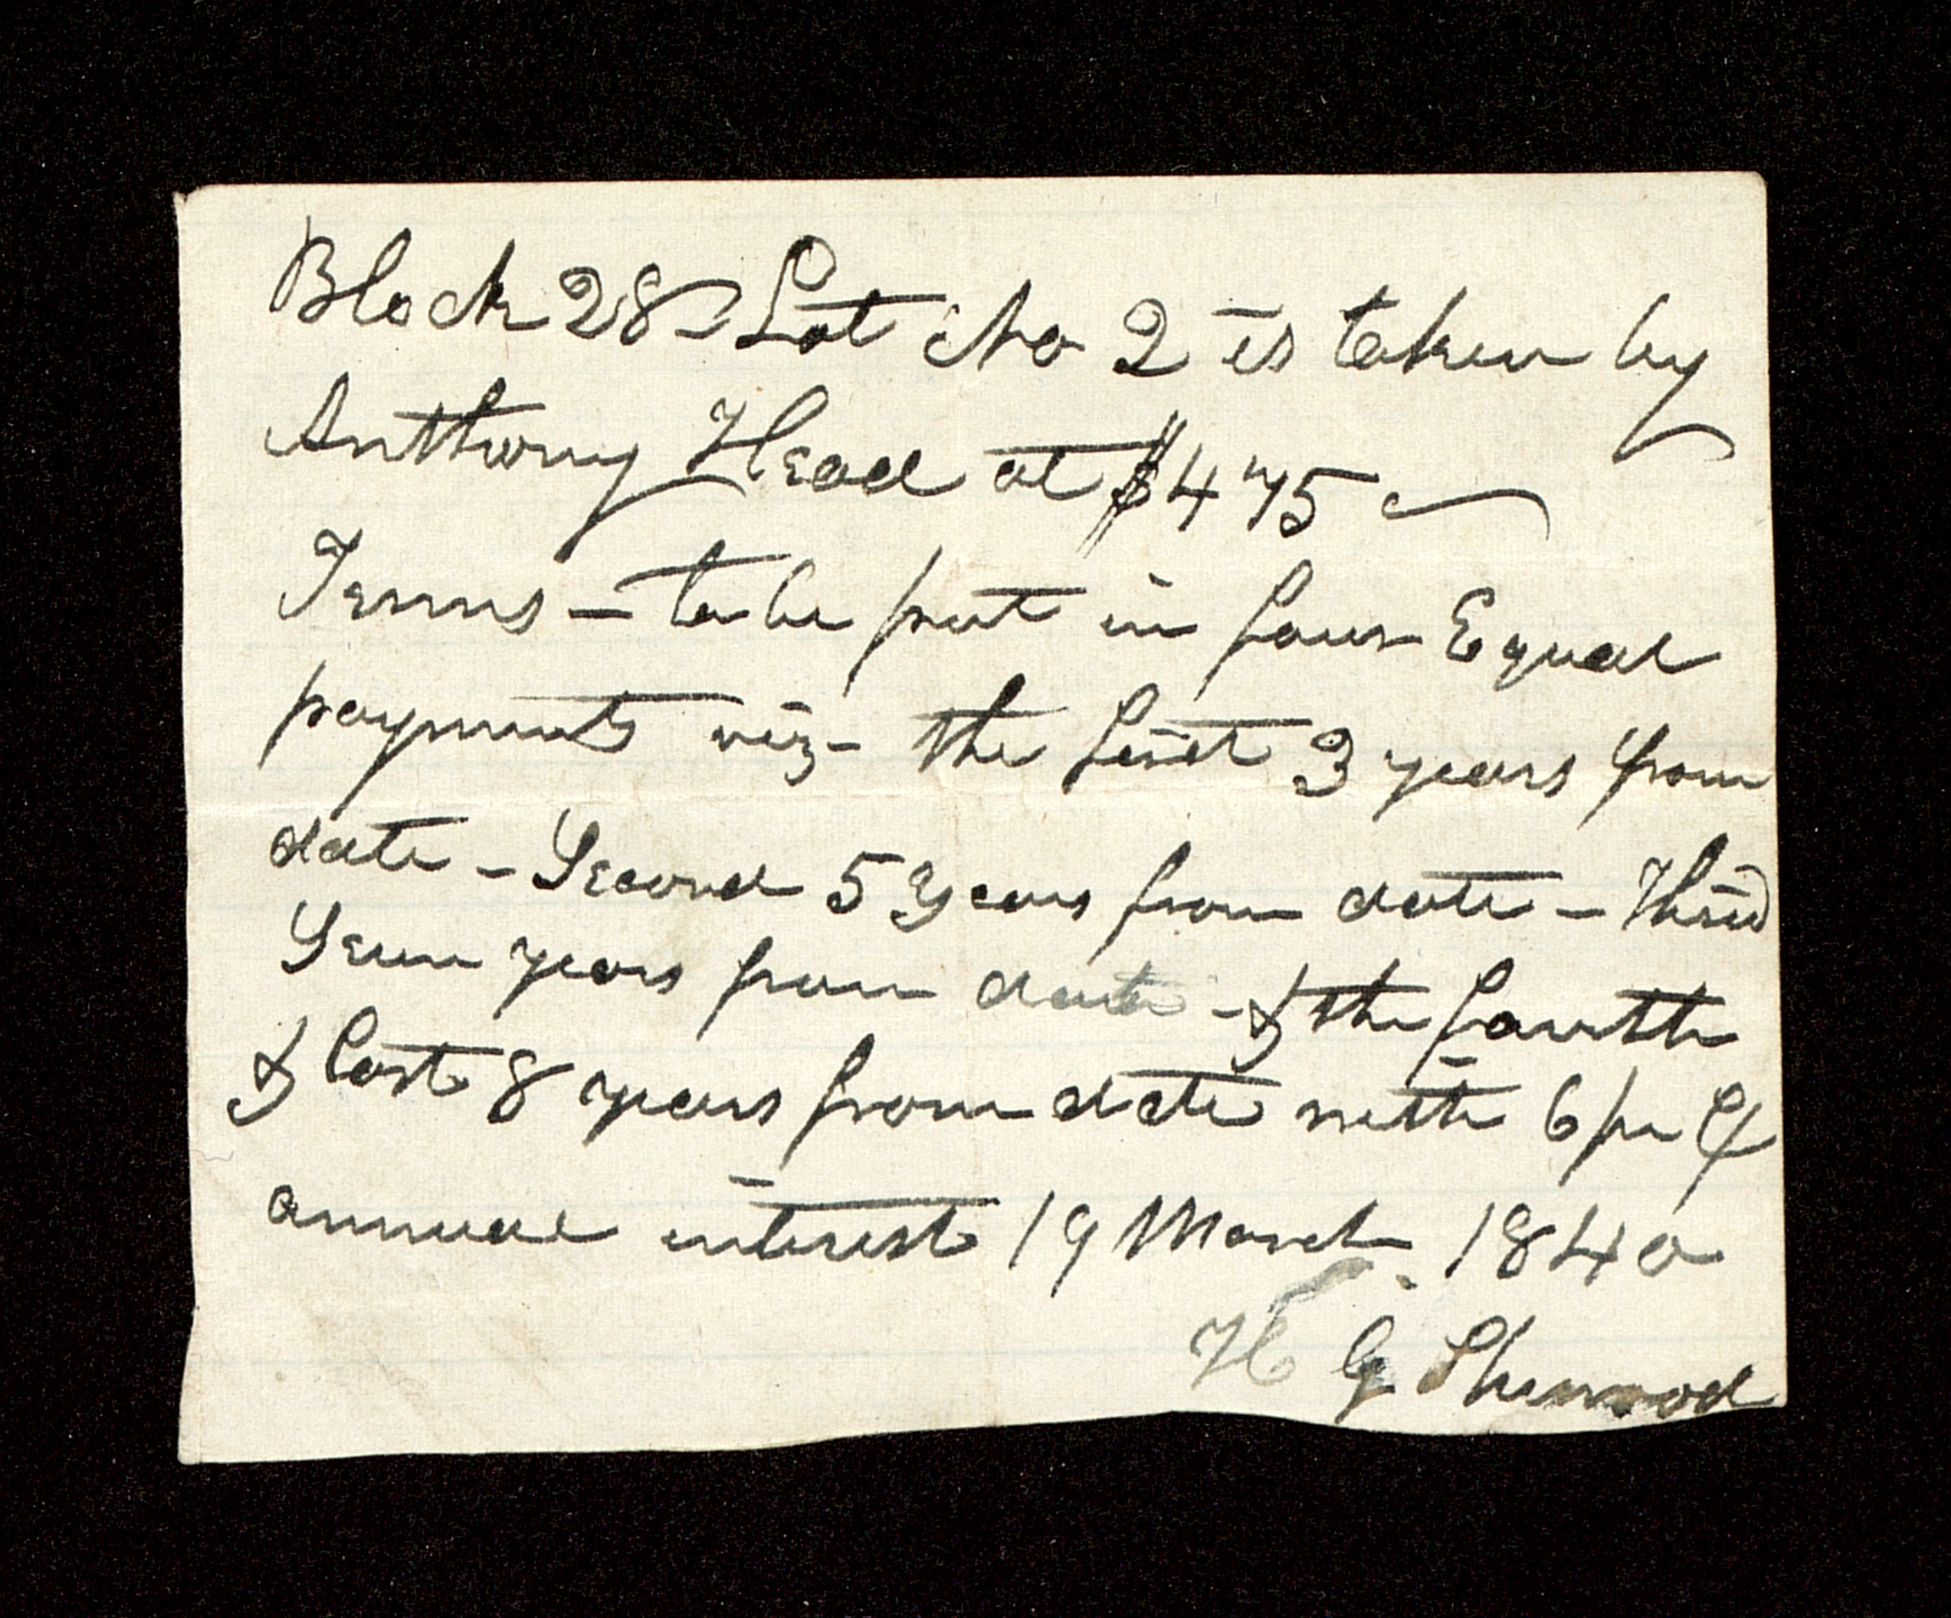 Block 28 Lot No 2 is taken by
Anthony Head at $475
Terms – to be put in four Equal
payments viz – the first 3 years from
date – Second 5 Years from date – Third
Seven years from date – & the fourth
& last 8 years from date with 6 per Ct
annual interest 19 March 1840
H G Sherwood